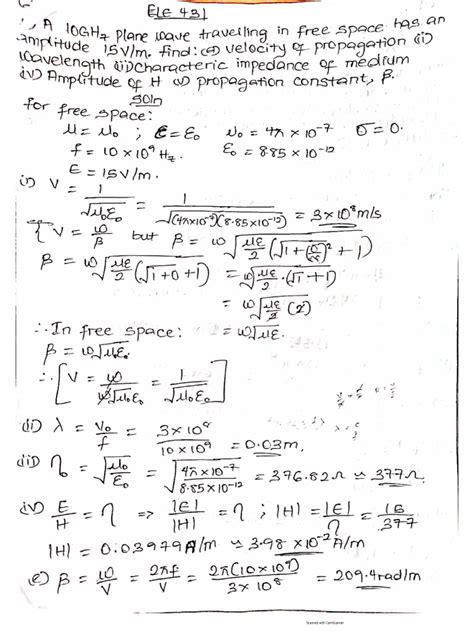 ELE 431
1, A 10GHz plane wave travelling in free space has an
amplitude 15V/m. find: (i) velocity of propagation (ii)
wavelength (iii) Characteric impedance of medium
(iv) Amplitude of H (v) propagation constant, β.
Soln
for free space:
μ = μ₀ ; ε = ε₀ μ₀ = 4π × 10⁻⁷ σ = 0.
f = 10 × 10⁹ Hz. ε₀ = 8.85 × 10⁻¹²
E = 15V/m.
(i) V = 1/√(μ₀ε₀) = 1/√((4π×10⁻⁷)(8.85×10⁻¹²)) = 3 × 10⁸ m/s
{ V = ω/β but β = ω√(με/2 (√(1+(σ/ωε)²) + 1)
β = ω√(με/2 (√(1+0) + 1) = ω√(με/2 · (√1 + 1)
= ω√(με/2 (2)
∴ In free space: = ω√με.
β = ω√μ₀ε₀
∴ [ V = ω/ω√μ₀ε₀ = 1/√μ₀ε₀ ]
(ii) λ = V₀/f = 3 × 10⁸/10 × 10⁹ = 0.03m.
(iii) η₀ = √(μ₀/ε₀) = √(4π × 10⁻⁷/8.85 × 10⁻¹²) = 376.82Ω ≃ 377Ω
(iv) E/H = η => |E|/|H| = η ; |H| = |E|/η = 15/377
|H| = 0.03979A/m ≃ 3.98 × 10⁻² A/m
(e) β = ω/V = 2πf/V = 2π(10 × 10⁹)/3 × 10⁸ = 209.4rad/m
Scanned with CamScanner